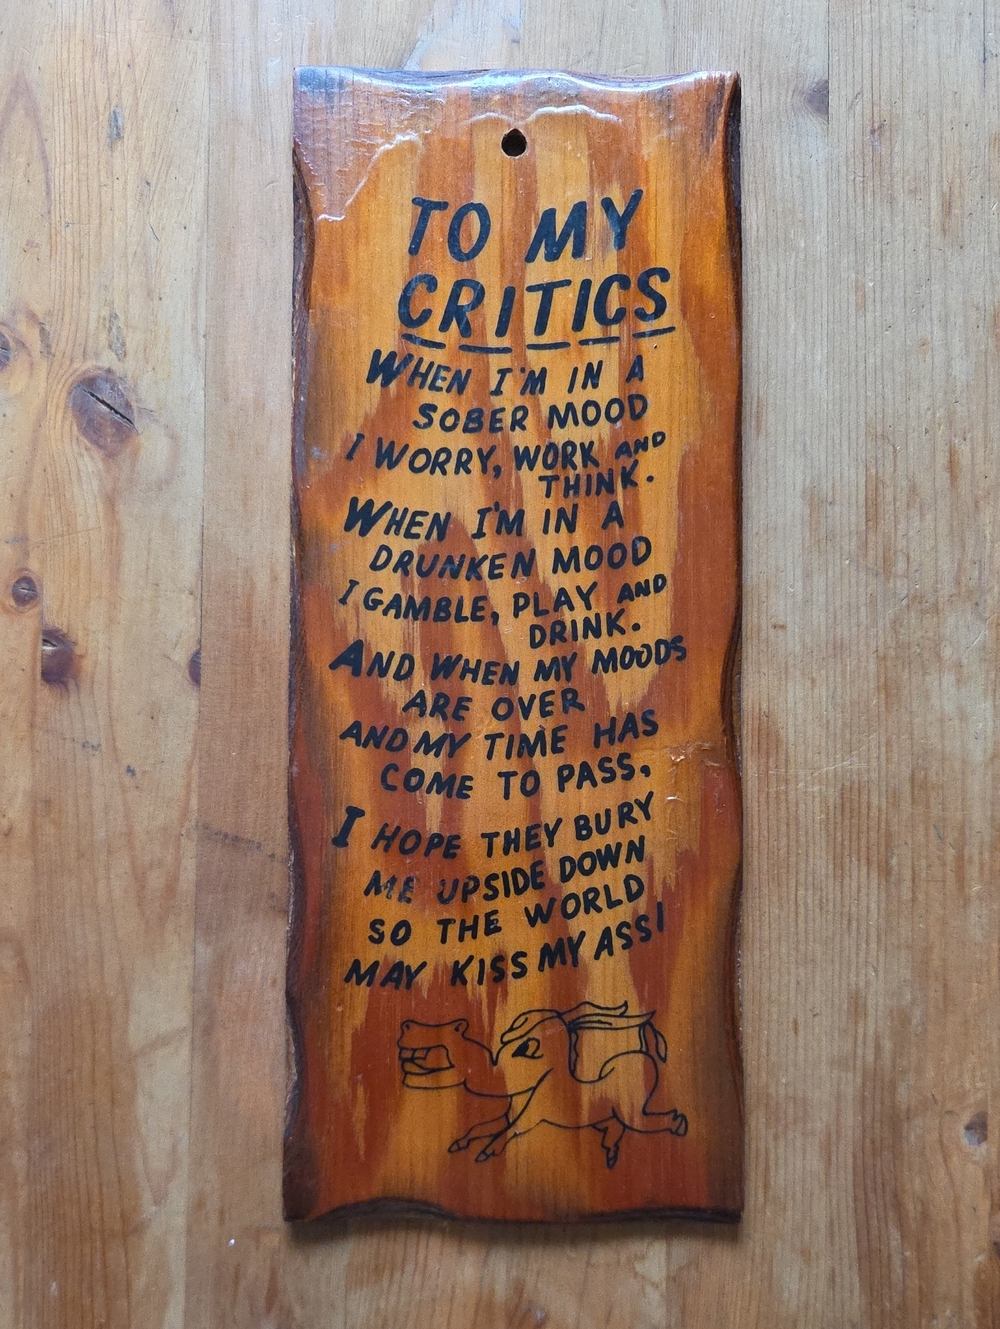 TO MY
CRITICS
WHEN I'M IN A
SOBER MOOD
I WORRY, WORK AND
THINK.
WHEN I'M IN A
DRUNKEN MOOD
I GAMBLE, PLAY AND
DRINK.
AND WHEN MY MOODS
ARE OVER
AND MY TIME HAS
COME TO PASS,
I HOPE THEY BURY
ME UPSIDE DOWN
SO THE WORLD
MAY KISS MY ASS!